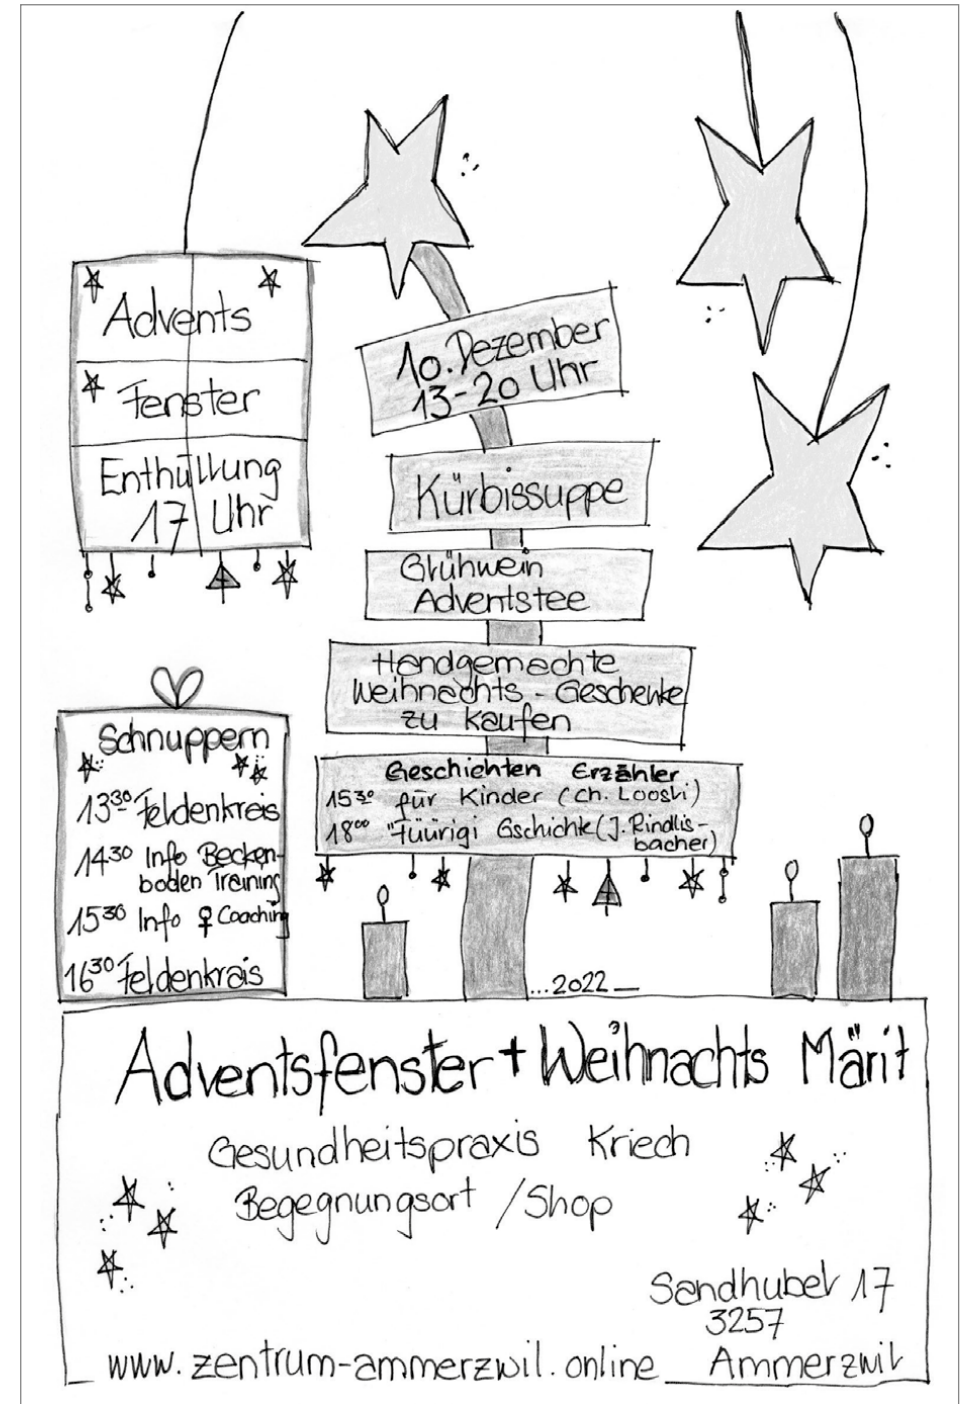 Advents
Fenster
Enthüllung
17 Uhr
10. Dezember
13-20 Uhr
Kürbissuppe
Glühwein
Adventstee
Handgemachte
Weihnachts-Geschenke
zu kaufen
Geschichten Erzähler
15³⁰ für Kinder (Ch. Loosli)
18⁰⁰ "Füürigi Gschichte (J. Rindlis-
bacher)
Schnuppern
13³⁰ Feldenkreis
14³⁰ Info Becken-
boden Training
15³⁰ Info ♀ Coaching
16³⁰ Feldenkrais
...2022
Adventsfenster + Weihnachts Märit
Gesundheitspraxis Kriech
Begegnungsort / Shop
Sandhubel 17
3257
www.zentrum-ammerzwil.online Ammerzwil